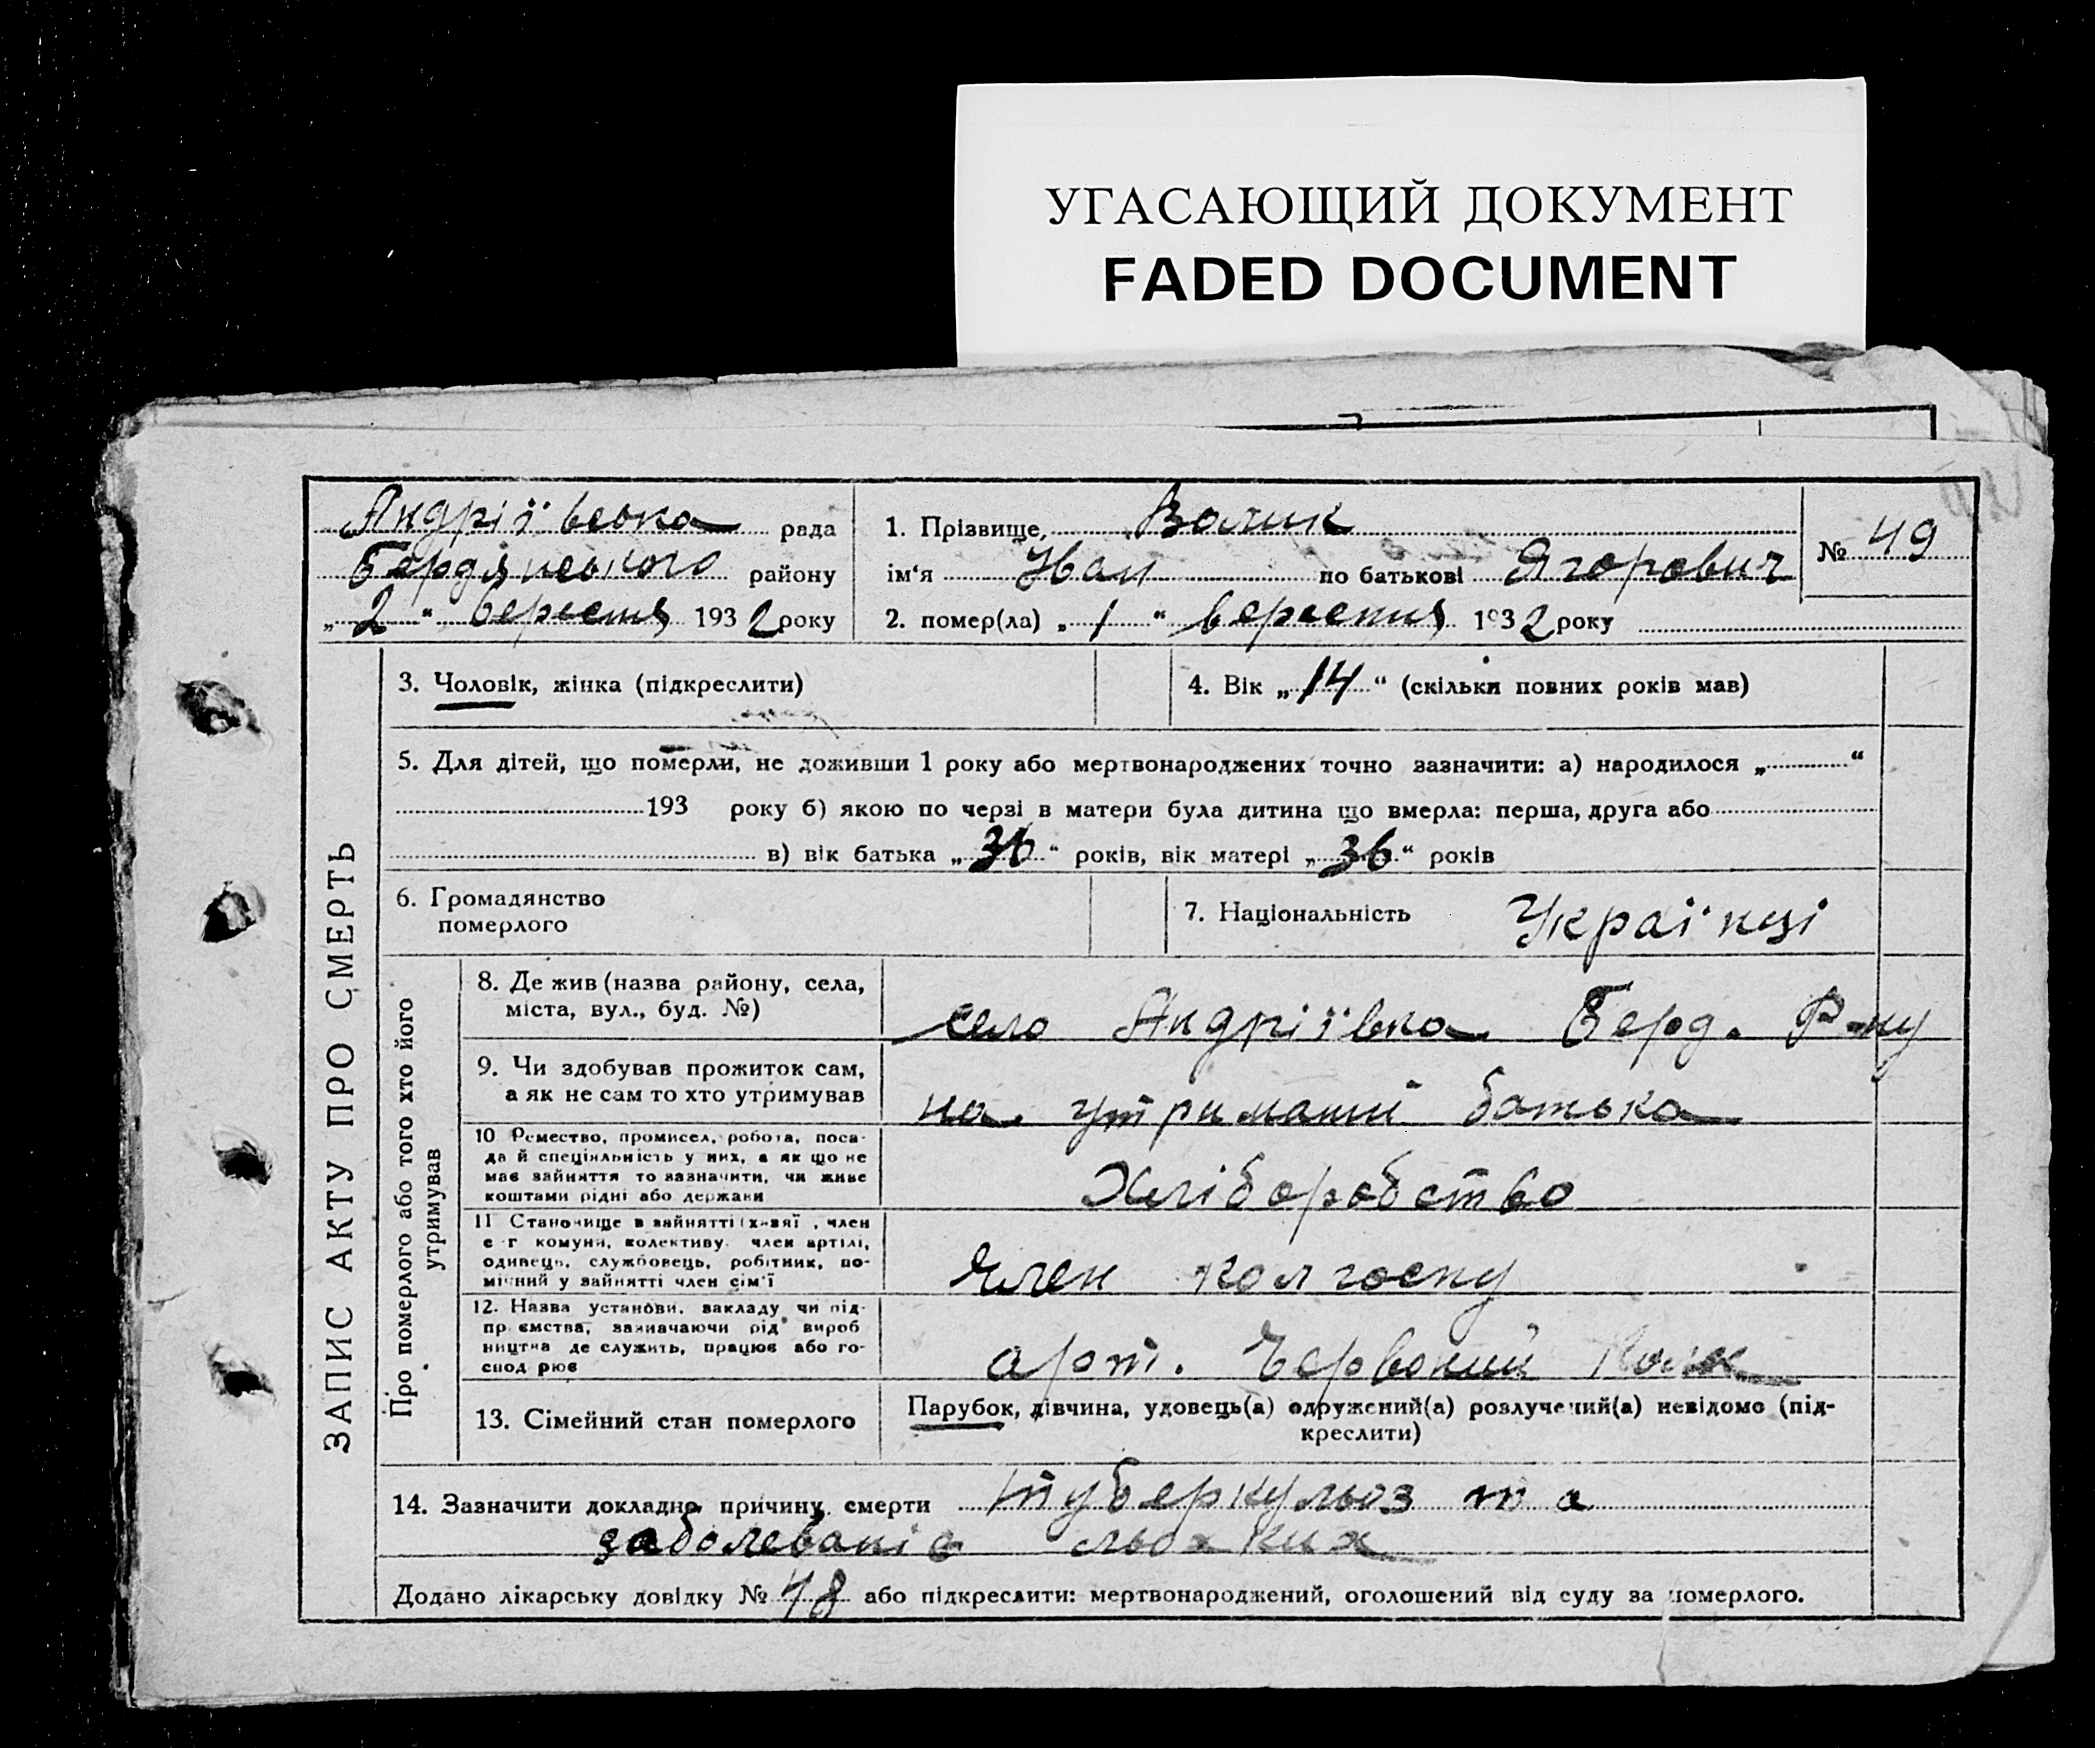 УГАСАЮЩИЙ ДОКУМЕНТ
FADED DOCUMENT
Андріївська рада
Бердянського району
„ 2 “ вересня 1932 року
1. Прізвище, Волик
ім‘я Іван по батькові Ягорович
2. помер(ла) „ 1 “ вересня 1932 року
№ 49
ЗАПИС АКТУ ПРО СМЕРТЬ
3. Чоловік, жінка (підкреслити)
4. Вік „ 14 “ (скільки повних років мав)
5. Для дітей, що померли, не доживши 1 року або мертвонароджених точно зазначити: а) народилося „ “
193 року б) якою по черзі в матери була дитина що вмерла: перша, друга або
в) вік батька „ 36 “ років, вік матері „ 36 “ років
6. Громадянство
померлого
7. Національність Українці
Про померлого або того хто його
утримував
8. Де жив (назва району, села,
міста, вул., буд. №)
село Андріївка Берд. Р-ну
9. Чи здобував прожиток сам,
а як не сам то хто утримував
на утриманні батька
10 Ремество, промисел, робота, поса-
да й спеціяльність у них, а як що не
має зайняття то зазначити, чи живе
коштами рідні або держави
Хліборобство
11 Становище в зайнятті (х-зяї , член
с-г комуни, колективу, член артілі,
одинець, службовець, робітник, по-
мічний у зайнятті член сім‘ї
Член колгоспу
12. Назва установи, закладу чи під-
пр ємства, зазначаючи рід вироб
ництва де служить, працює або го-
спод рює
арт. Червоний
13. Сімейний стан померлого
Парубок, дівчина, удовець(а) одружений(а) розлучений(а) невідомо (під-
креслити)
14. Зазначити докладно причину смерти туберкульоз та
заболеваніє льохких
Додано лікарську довідку № 48 або підкреслити: мертвонароджений, оголошений від суду за померлого.